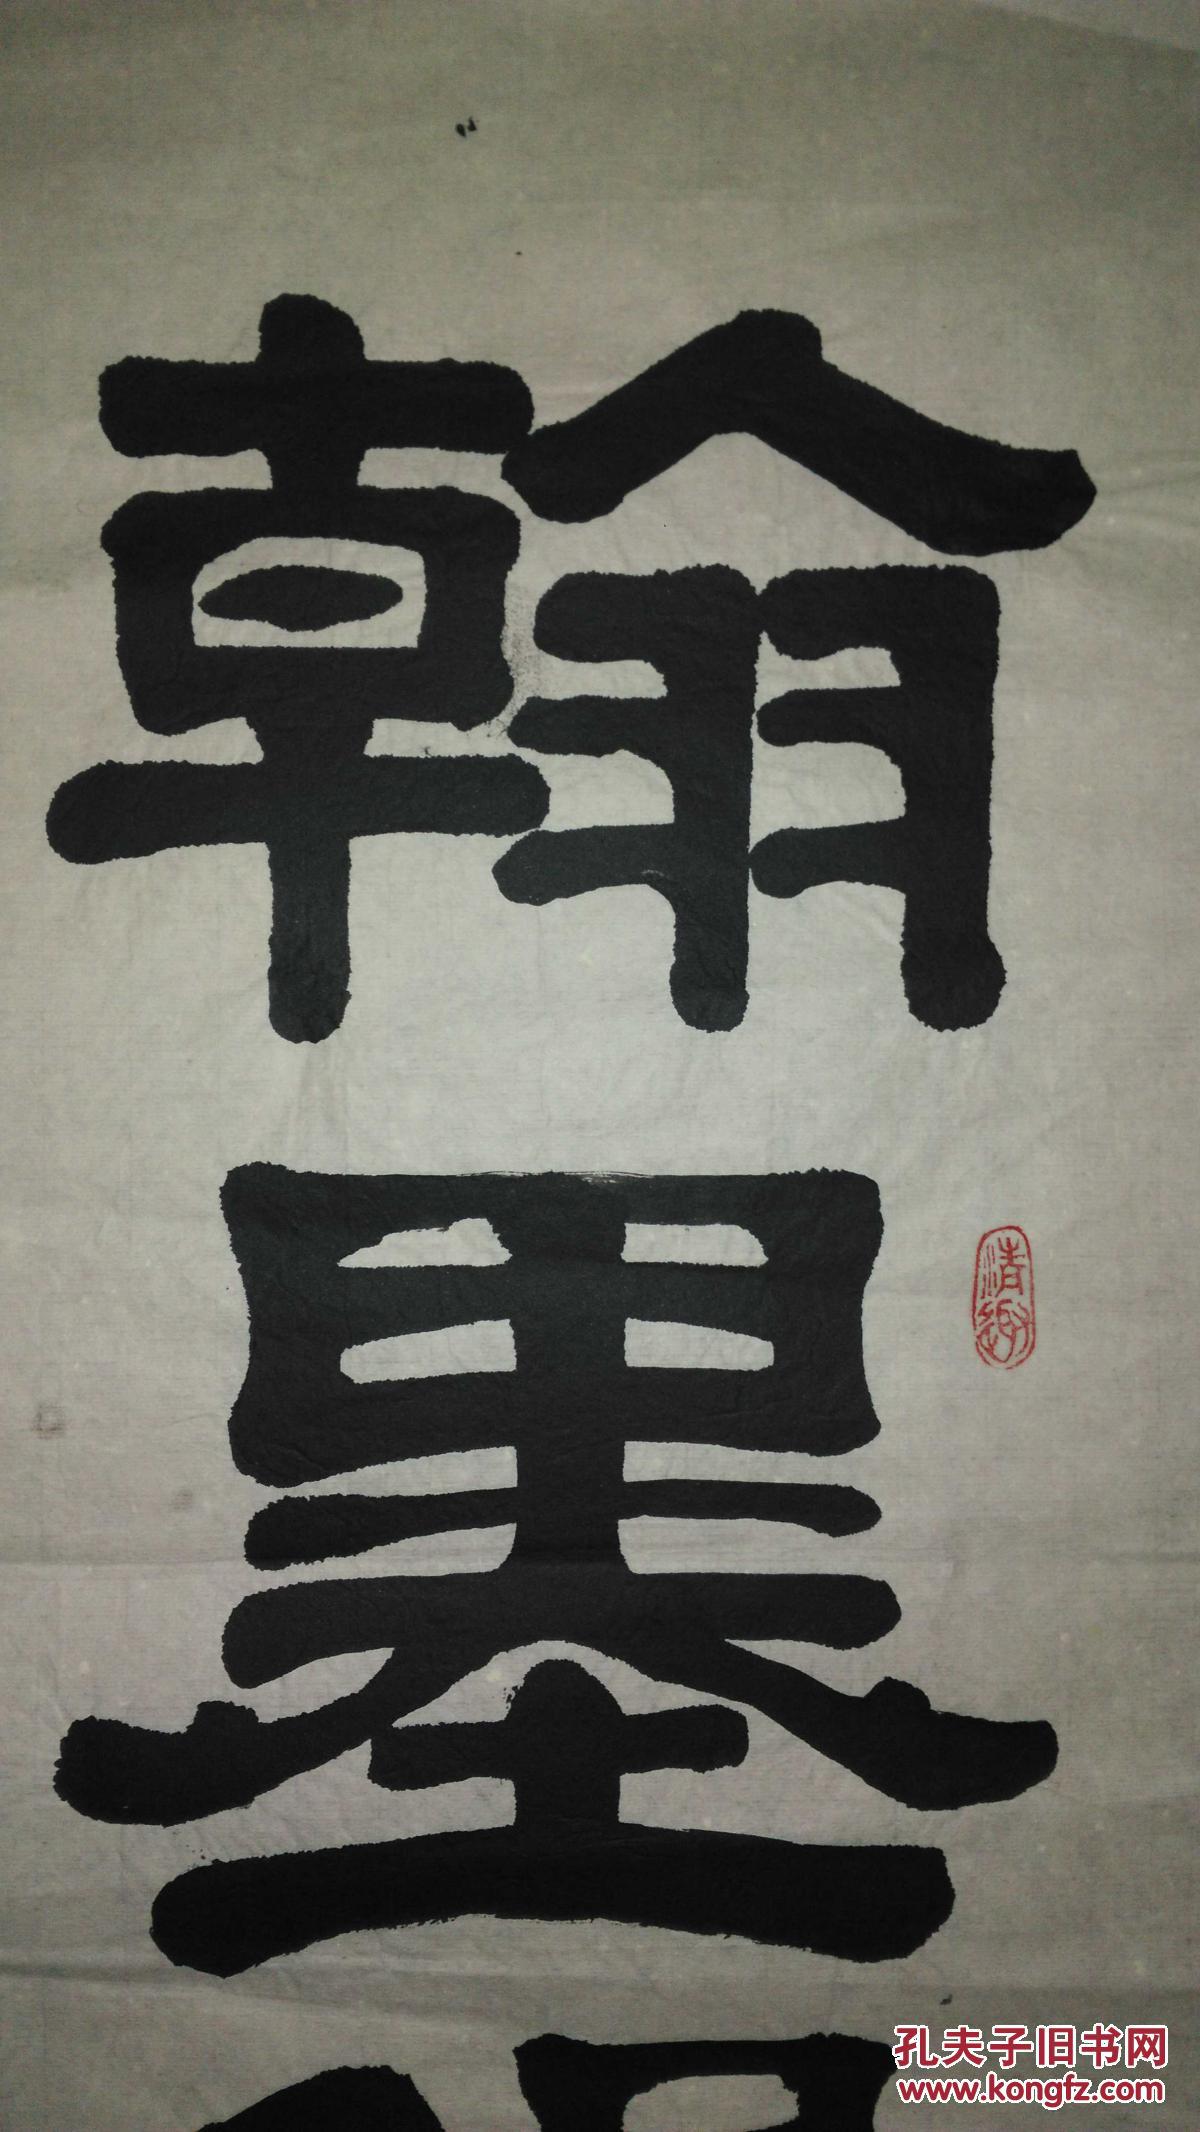 翰
墨
孔夫子旧书网
www.kongfz.com